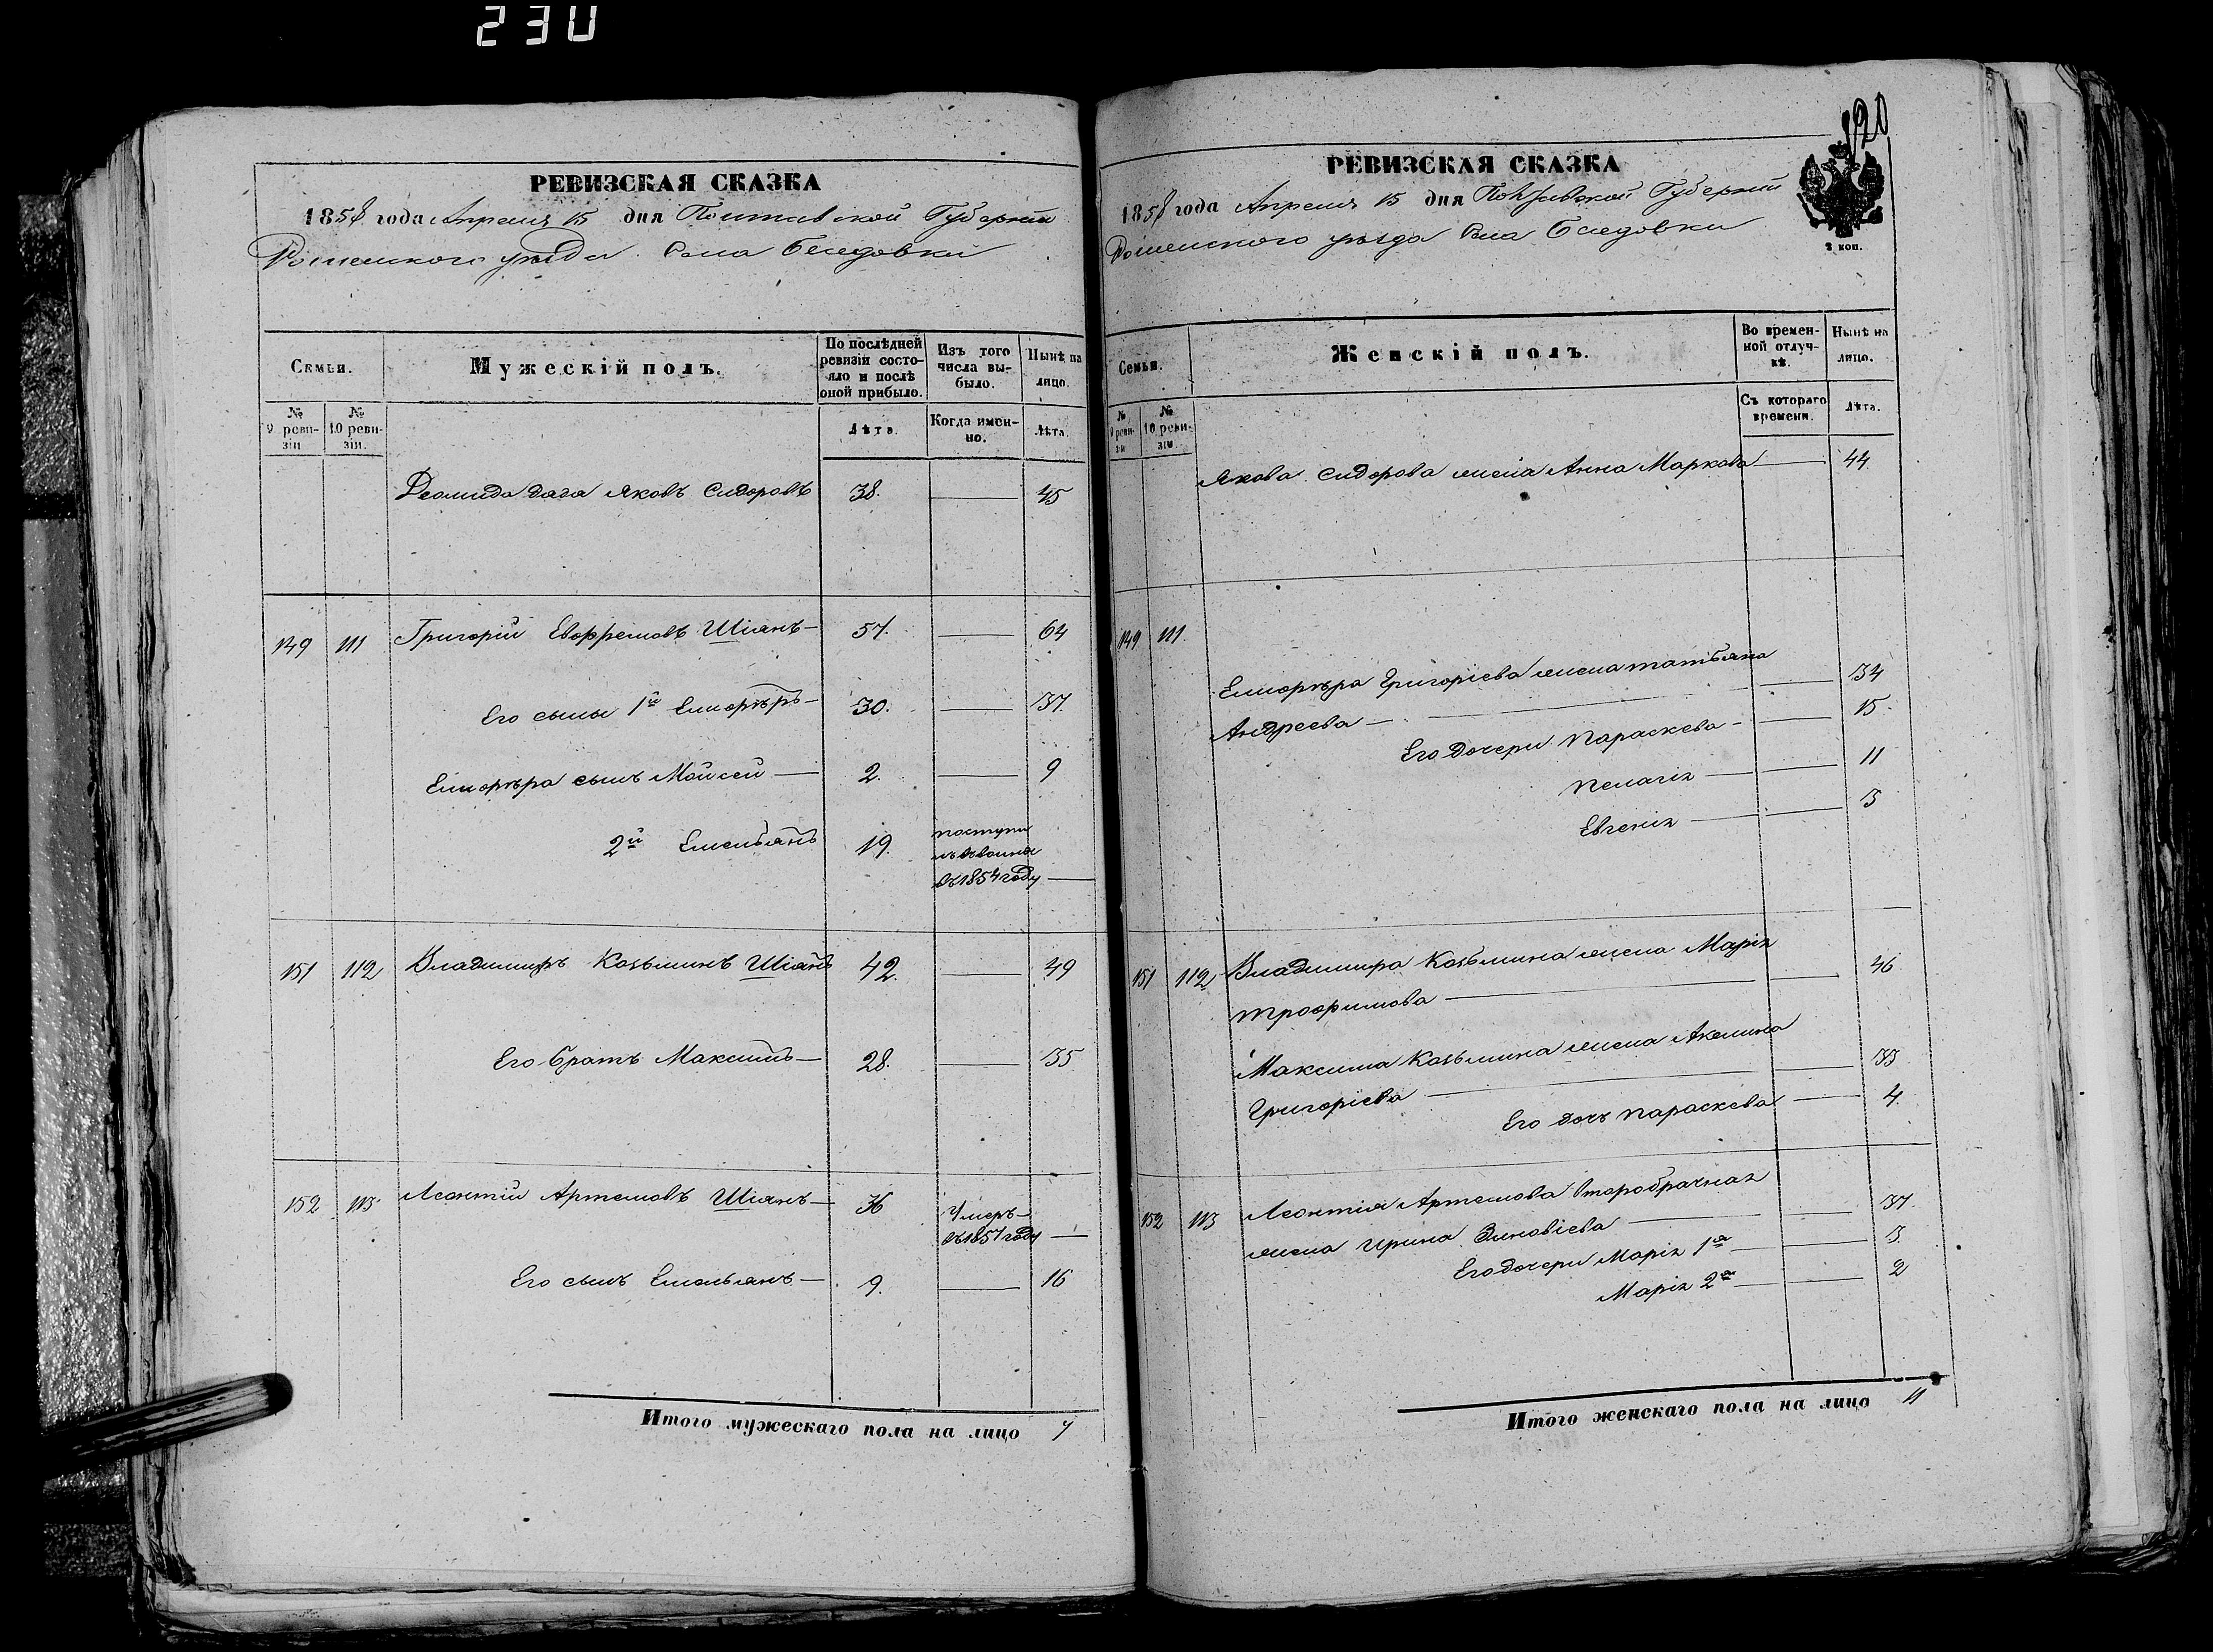 230
РЕВИЗСКАЯ СКАЗКА
1858 года Апреля 15 дня Полтавской Губерніи
Роменского уѣзда Села Беседовки
Семьи.
Мужескій полъ.
По послѣдней ревизіи состояло и послѣ оной прибыло.
Изъ того числа выбыло.
Нынѣ на лицо.
№ 9 ревизіи
№ 10 ревизіи.
Лѣта.
Когда именно.
Лѣта.
дядя Яковъ Сидоровъ 38. 45
149 111 Григорій Евфремовъ Шіянъ 57. 64
Его сыны 1й Елиоръръ 30. 37.
сынъ Мойсей 2. 9
2й Емельянъ 19. поступи
лъ въ воины
въ 1854 году
151 112 Владимиръ Козьминъ Шіянъ 42. 49
Его братъ Максимъ 28. 35
152 113 Леонтій Артемовъ Шіянъ 36 Умеръ
въ 1857 году
Его сынъ Емельянъ 9. 16
Итого мужескаго пола на лицо 7
120
РЕВИЗСКАЯ СКАЗКА
1858 года Апреля 15 дня Полтавской Губерніи
Роменского уѣзда Села Беседовки
2 коп.
Семьи.
Женскій полъ.
Во временной отлучкѣ.
Нынѣ на лицо.
№ 9 ревизіи
№ 10 ревизіи.
Съ котораго времени.
Лѣта.
Якова Сидорова жена Анна Маркова 44
149 111.
Григоріева жена Татьяна
Андреева 34
Его дочери Параскева 15
Пелагія 11
Евгенія 3
151 112 Владимира Козьмина жена Марія
Трофимова 46
Максима Козьмина жена Акелина
Григоріева 33
Его дочь Параскева 4.
152 113 Леонтія Артемова второбрачная
жена Ирина Зиновіева 37.
Его дочери Марія 1я 3.
Марія 2я 2
Итого женскаго пола на лицо 11